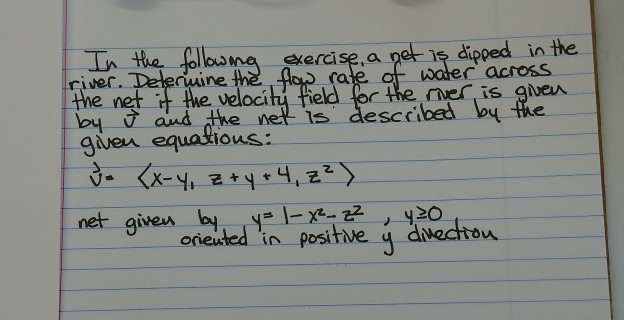 In the following exercise, a net is dipped in the
river. Determine the flow rate of water across
the net if the velocity field for the river is given
by v⃗ and the net is described by the
given equations:
v⃗ = ⟨x-y, z+y+4, z²⟩
net given by y=1-x²-z², y≥0
oriented in positive y direction